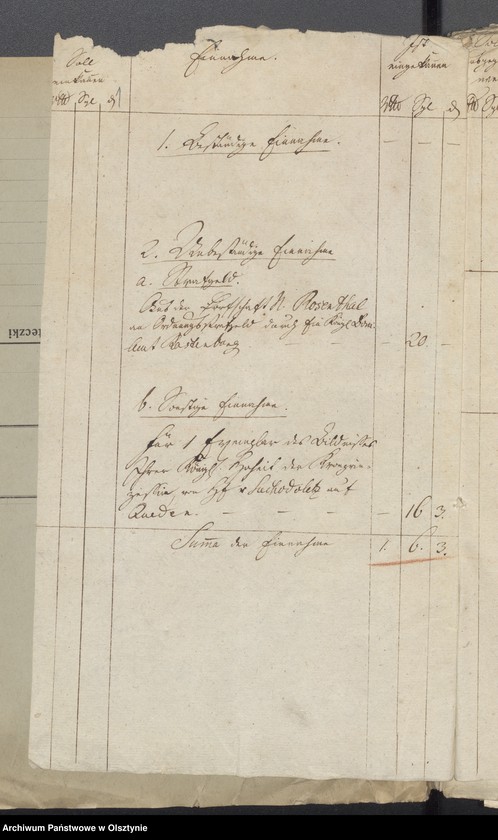 Soll
einkommen
Einnahme.
Ist
eingekommen
Rthl Sgl d
Rthl Sgl d
1. Beständige Einnahme.
— — —
2. Unbeständige Einnahme
a. Strafgeld.
Von der Ortschaft N. Rosenthal
an Ordnungsstrafgeld durch ein Königl. Dom.
Amt Rastenburg — — — 20. —
b. Sonstige Einnahme.
Für 1 Exemplar des Bildnisses
Ihrer Königl. Hoheit der Kronprin-
zessin, von H. v Suchodoletz auf
— — — — 16 3.
Summa der Einnahme 1. 6. 3.
teczki
Archiwum Państwowe w Olsztynie